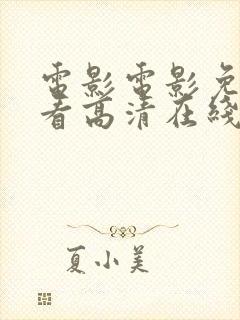 電影電影免
看高清在綫
夏小美